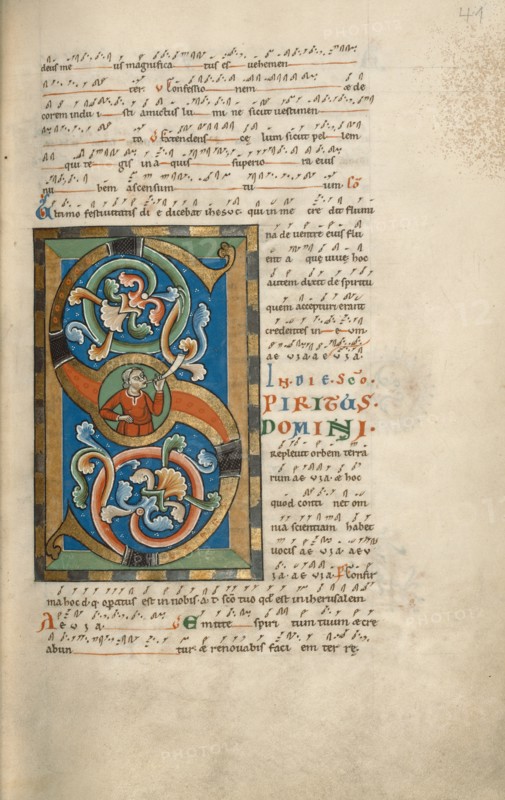 41
deus me us magnifica tus es vehemen
ter v Confessio nem æ de
corem indu i sti amictus lu mi ne sicut vestimen
to. v Extendens cę lum sicut pel lem
qui te gis in a quis superio ra eius
nu bem ascensum tu um. Co
Ultimo festivitatis di e dicebat ihesus qui in me cre dit flumi
na de ventre eius flu
ent a quę vivę hoc
autem dixit de spiritu
quem accepturi erant
credentes in e um
ae v ia. a e v ia.
IN. DIE. SCO.
PIRITUS.
DOMINI.
Replevit orbem terra
rum ae v ia. æ hoc
quod conti net om
nia scientiam habet
vocis ae v ia. ae v
ia. ae v ia. p Confir
ma hoc d. q. opatus est in nobis. a. t. sco tuo qd est in iherusalem
A e v ia. v Emitte spiri tum tuum æ cre
abun tur æ renovabis faci em ter rę.